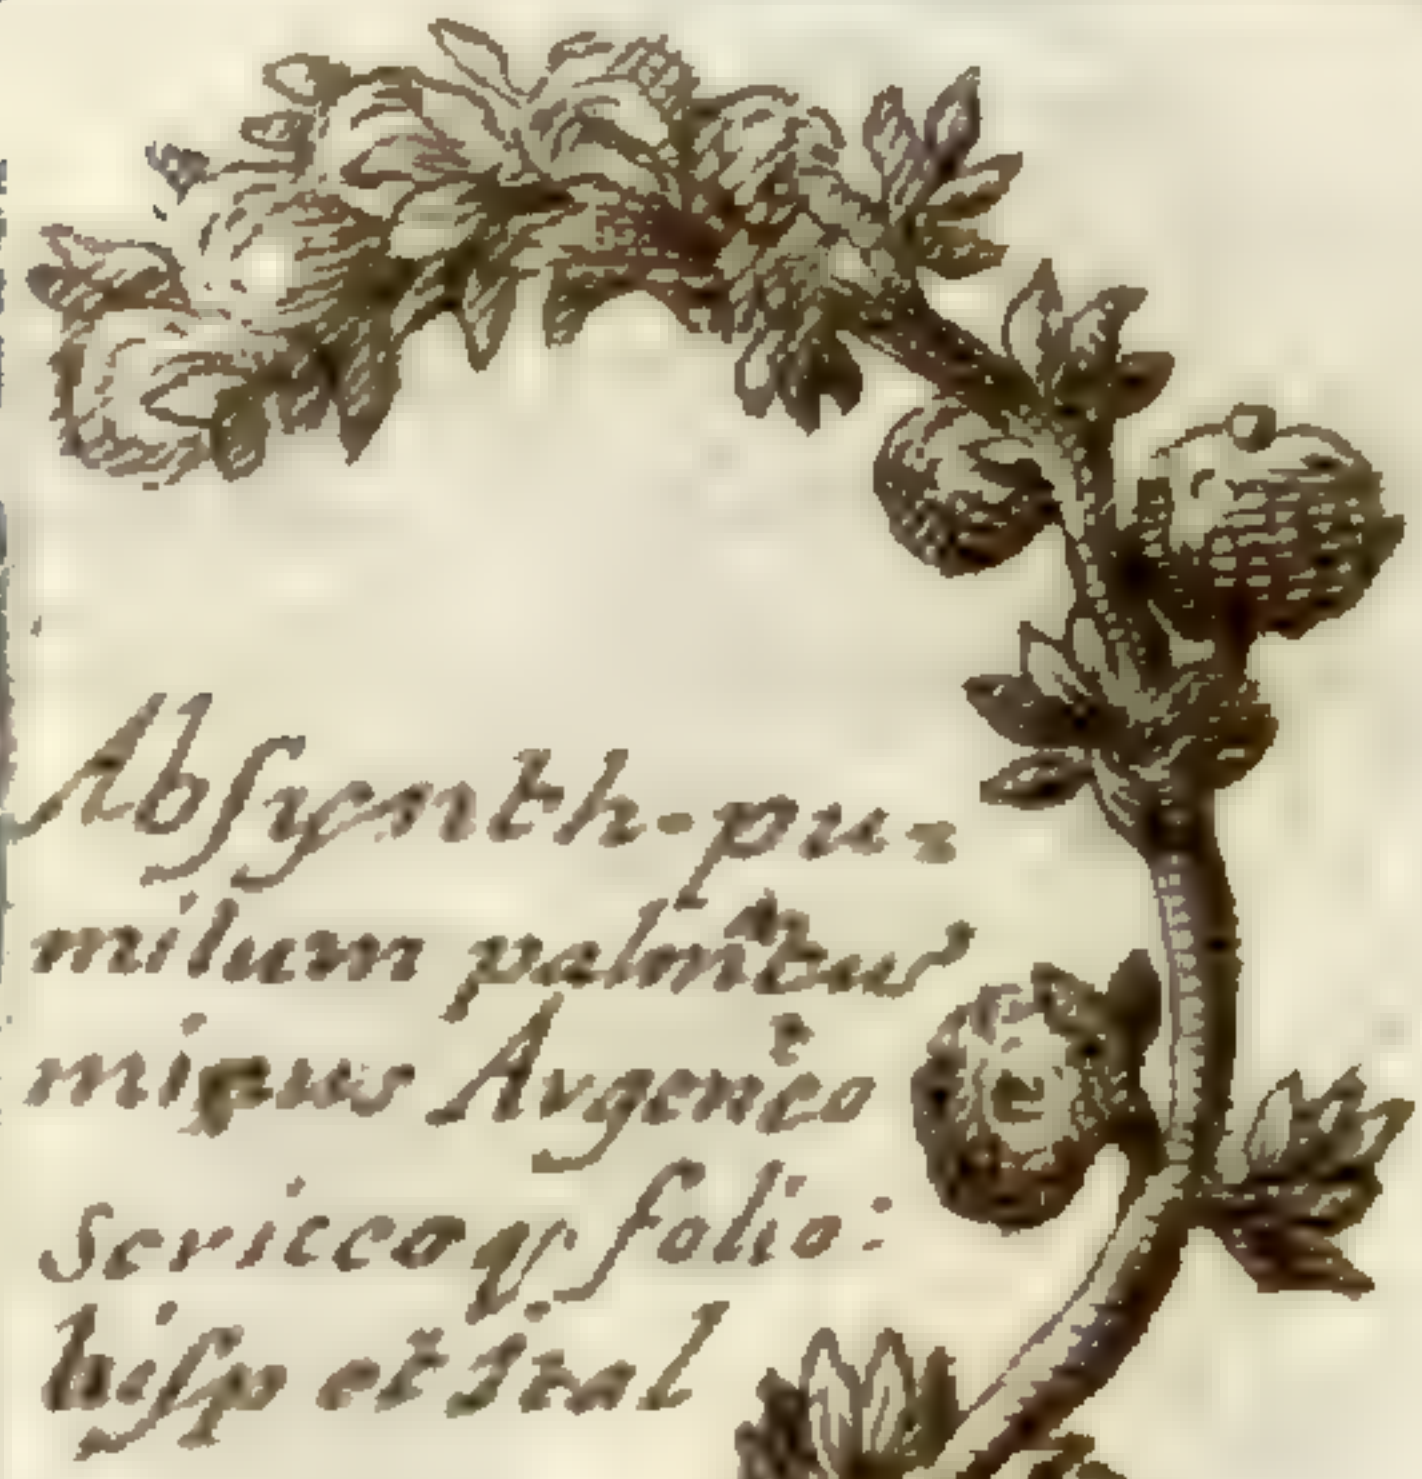 Abſynth-pu-
milum palmitus
minus Argenteo
sericeoq; folio:
hiſp et Ital